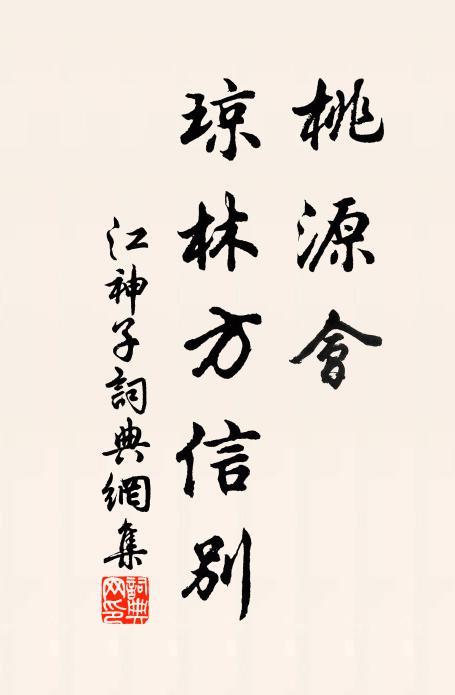 桃源會
琼林方信别
江神子詞典網集
詞典網印